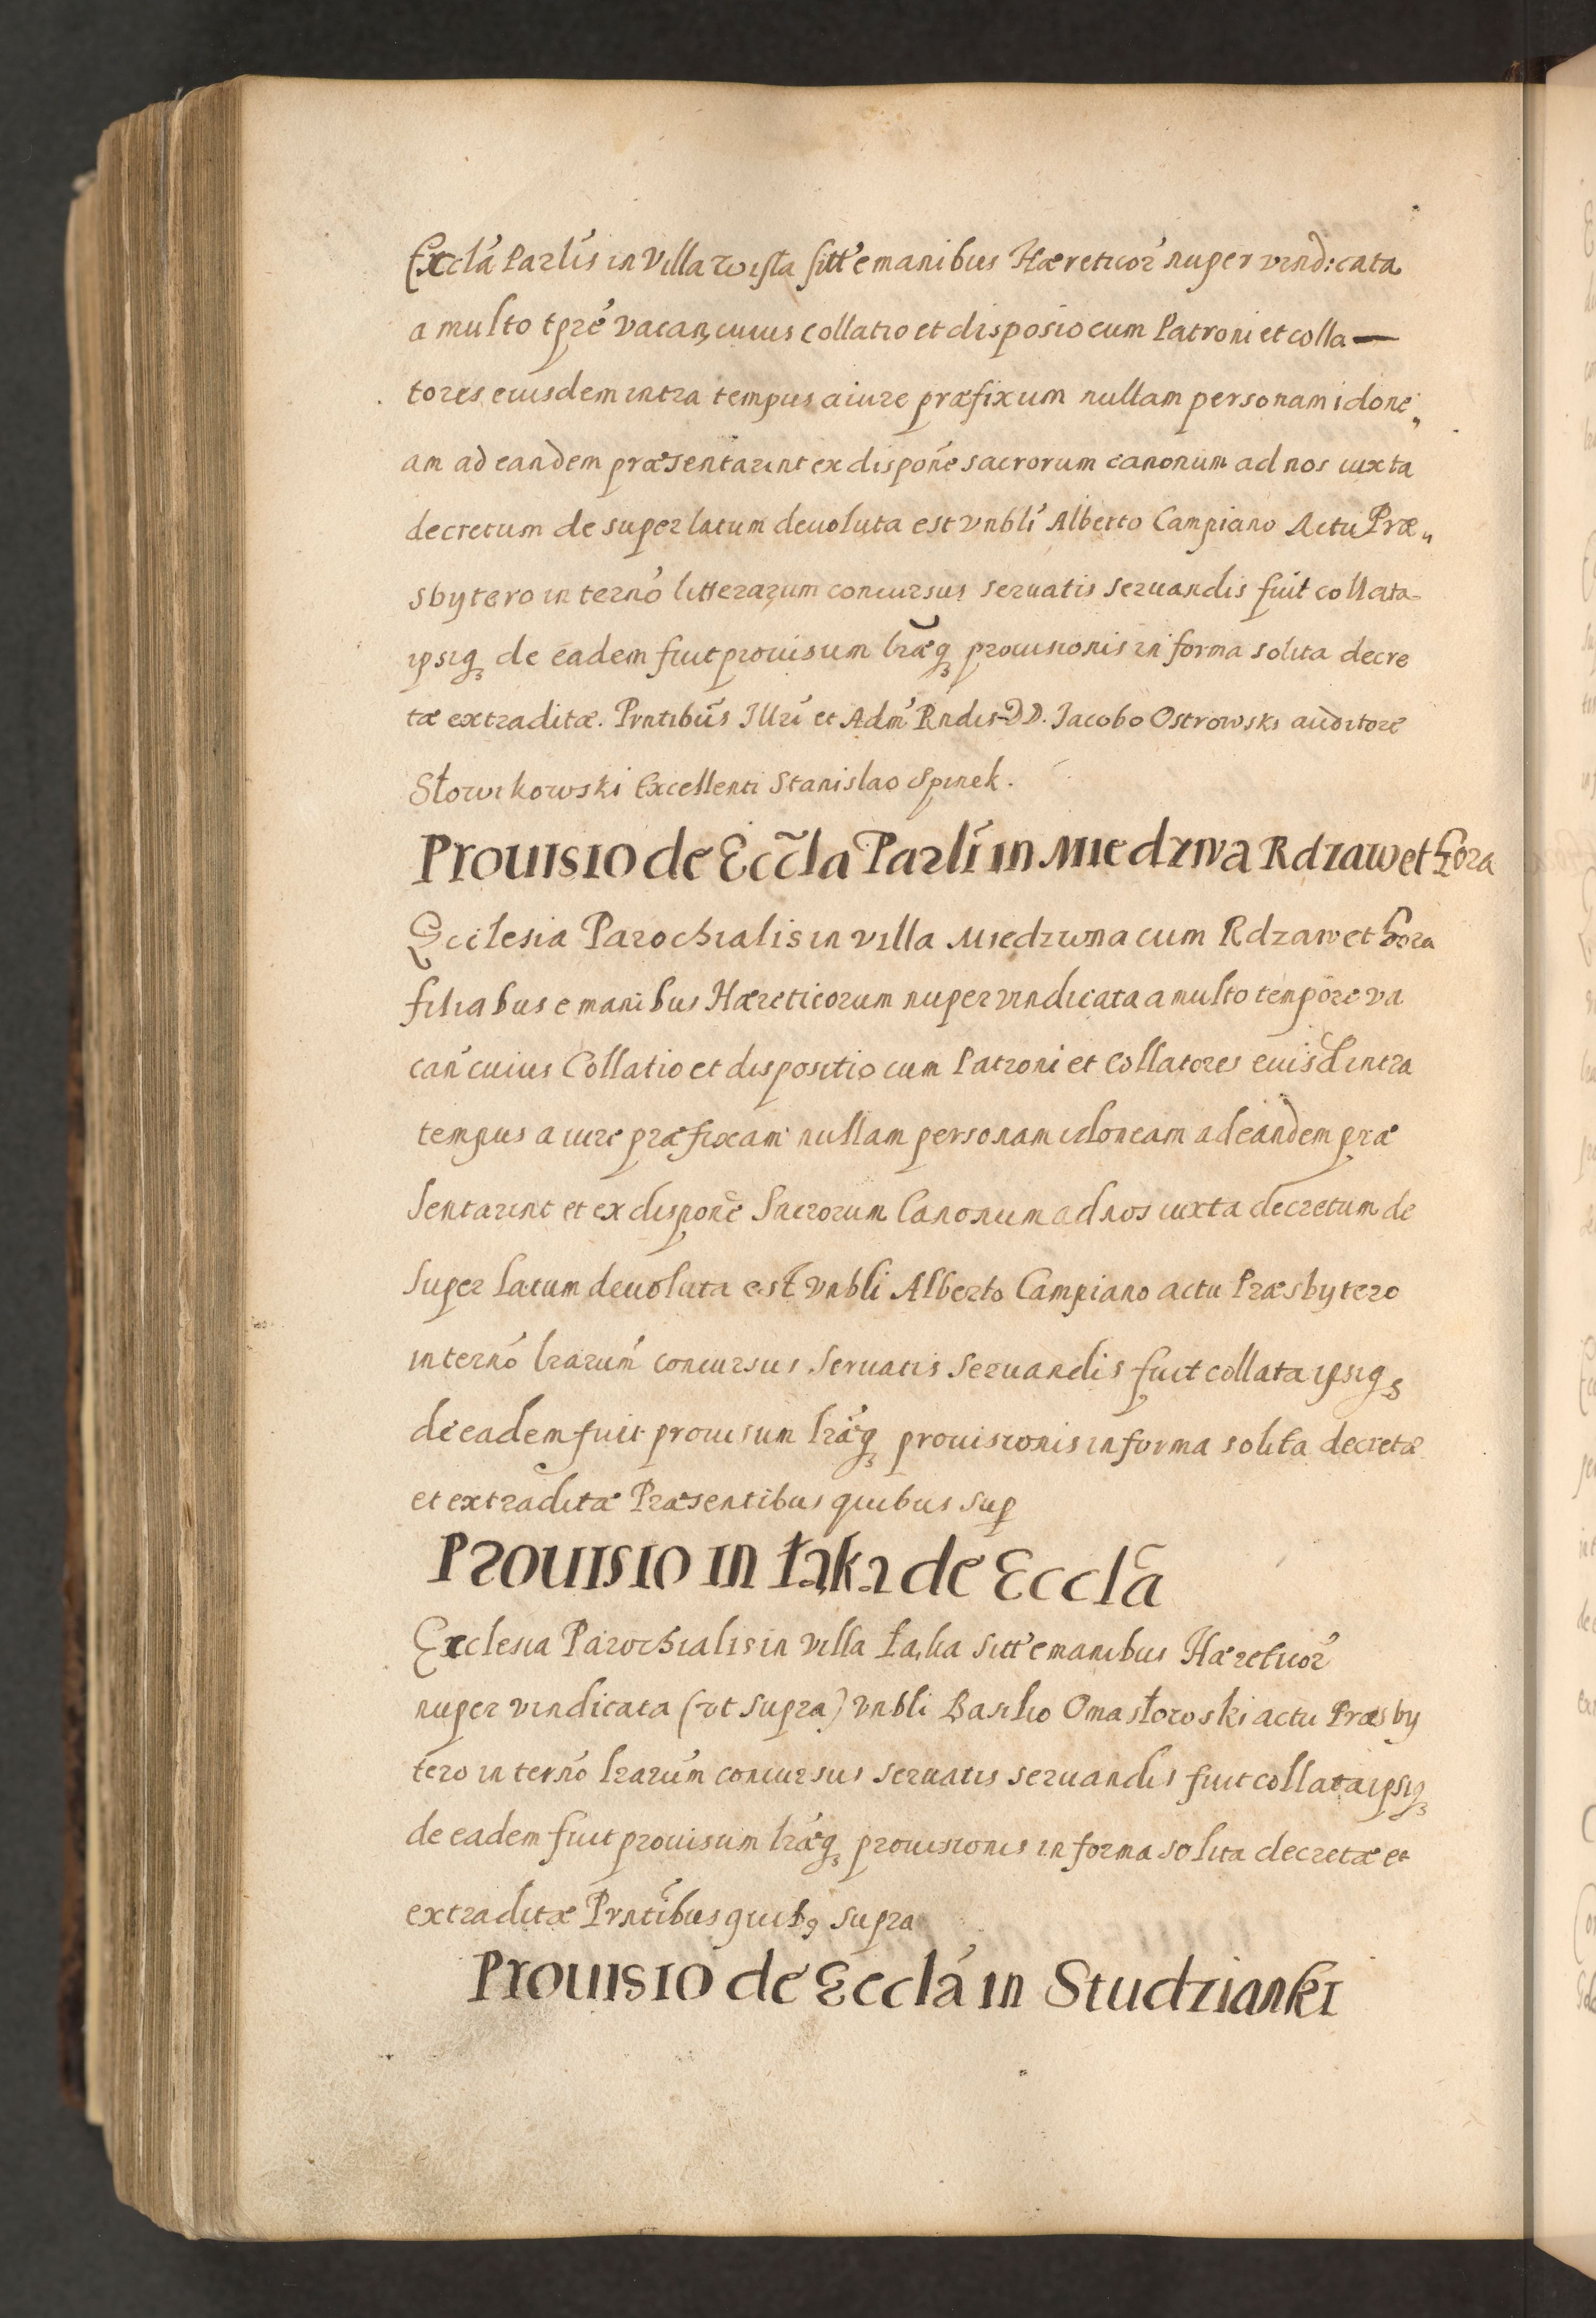 Ecclã Parlis in Villa Wisła sitt̃ e manibus Hæreticor̃ nuper vindicata
a multo tp̃re vacan, cuius collatio et disposio cum Patroni et colla—
tores eiusdem intra tempus a iure præfixum nullam personam idone„
am ad eandem præsentarint ex dispoñe sacrorum canonum ad nos iuxta
decretum de super latum deuoluta est vnbli Alberto Campiano Actu Præ„
sbytero in terño litterarum concursus seruatis seruandis fuit collata
ipsiq₃ de eadem fuit prouisum lr̃æq₃ prouisionis in forma solita decre
tæ extraditæ. Prñtibus Illri et Adm̃ Rndis DD. Jacobo Ostrowski auditore
Słowikowski Excellenti Stanislao Spinek.
Prouisio de Ecc̃la Parli in Miedzwa Rdzaw et Gora
Ecclesia Parochialis in villa Miedzwna cum Rdzaw et Gora
filiabus e manibus Hæreticorum nuper vindicata a multo tempore va
cañ cuius Collatio et dispositio cum Patroni et Collatores euisd intra
tempus a iure præfixam nullam personam idoneam ad eandem præ
sentarint et ex dispoñe Sacrorum Canonum ad nos iuxta decretum de
super latum deuoluta est vnbli Alberto Campiano actu Præsbytero
in terño lrarum̃ concursus seruatis seruandis fuit collata ipsiq₃
de eadem fuit prouisum lr̃æq₃ prouisionis in forma solita decretæ
et extraditæ Præsentibus quibus sup
Prouisio in Łąka de Ecclã
Ecclesia Parochialis in Villa Łąka sitt̃ e manibus Hæreticor̃
nuper vindicata (vt supra) vnbli Basilio Omasłowski actu Præsby
tero in terño lrarum̃ concursus seruatis seruandis fuit collata ipsiq₃
de eadem fuit prouisum lr̃æq₃ prouisionis in forma solita decretæ et
extraditæ Prñtibus quib₉ supra
Prouisio de Ecclã in Studzianki